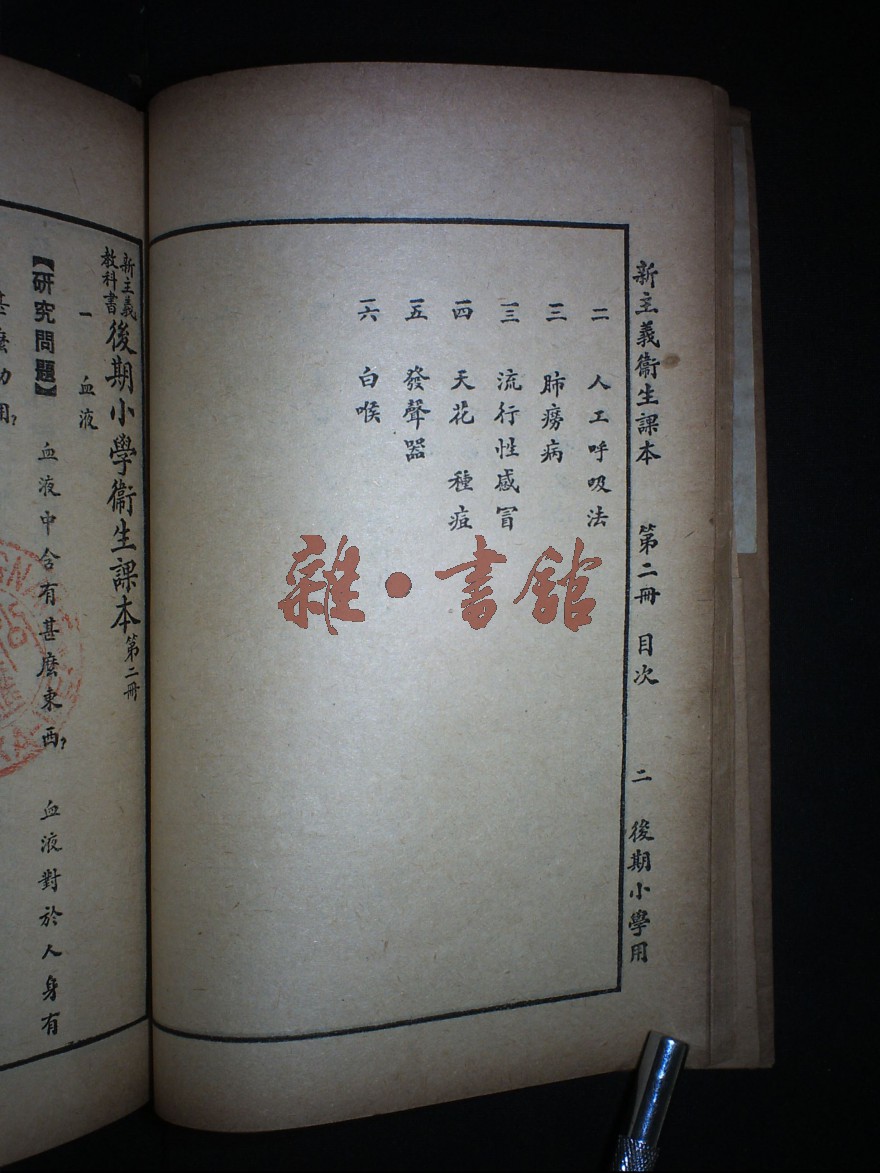 新主義衞生課本 第二冊 目次 二 後期小學用
一一 人工呼吸法
一二 肺癆病
一三 流行性感冒
一四 天花 種痘
一五 發聲器
一六 白喉
雜·書館
新主義教科書 後期小學衞生課本 第二冊
一 血液
【研究問題】 血液中含有甚麼東西？ 血液對於人身有
甚麼功用？